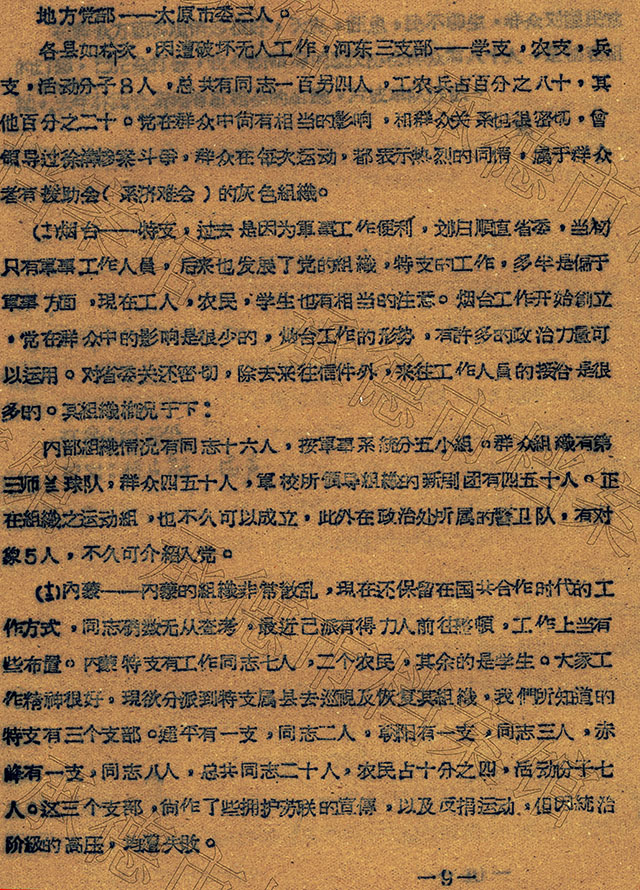 地方党部——太原市委三人。
各县如榆次，因遭破坏无人工作，河东三支部——学支，农支，兵
支，活动分子8人，总共有同志一百另四人，工农兵占百分之八十，其
他百分之二十。党在群众中尚有相当的影响，和群众关系也很密切，曾
领导过徐案斗争，群众在每次运动，都表示热烈的同情，属于群众
者有援助会（系济难会）的灰色組織。
烟台——特支，过去是因为軍事工作便利，划归順直省委，当初
只有軍事工作人員，后来也发展了党的組織，特支的工作，多半是偏于
軍事方面，現在工人，农民，学生也有相当的注意。烟台工作开始創立
，党在群众中的影响是很少的，烟台工作的形势，有許多的政治力量可
以运用。对省委关还密切，除去来往信件外，来往工作人員的接洽是很
多的。其組織概况于下：
内部組織情况有同志十六人，按軍事系統分五小組。群众組織有第
三师兰球队，群众四五十人，軍校所領导組織的新剧团有四五十人。正
在組織之运动組，也不久可以成立，此外在政治处所属的警卫队，有对
象5人，不久可介紹入党。
内蒙——内蒙的組織非常散乱，現在还保留在国共合作时代的工
作方式，同志确数无从查考，最近已派有得力人前往整頓，工作上当有
些布置。内蒙特支有工作同志七人，二个农民，其余的是学生。大家工
作精神很好。現欲分派到特支属县去巡視及恢复其組織，我們所知道的
特支有三个支部。建平有一支，同志二人，朝阳有一支，同志三人，赤
峰有一支，同志八人，总共同志二十人，农民占十分之四，活动份子七
人。这三个支部，尚作了些拥护苏联的宣傳，以及反捐运动，但因統治
阶级的高压，均遭失敗。
—9—